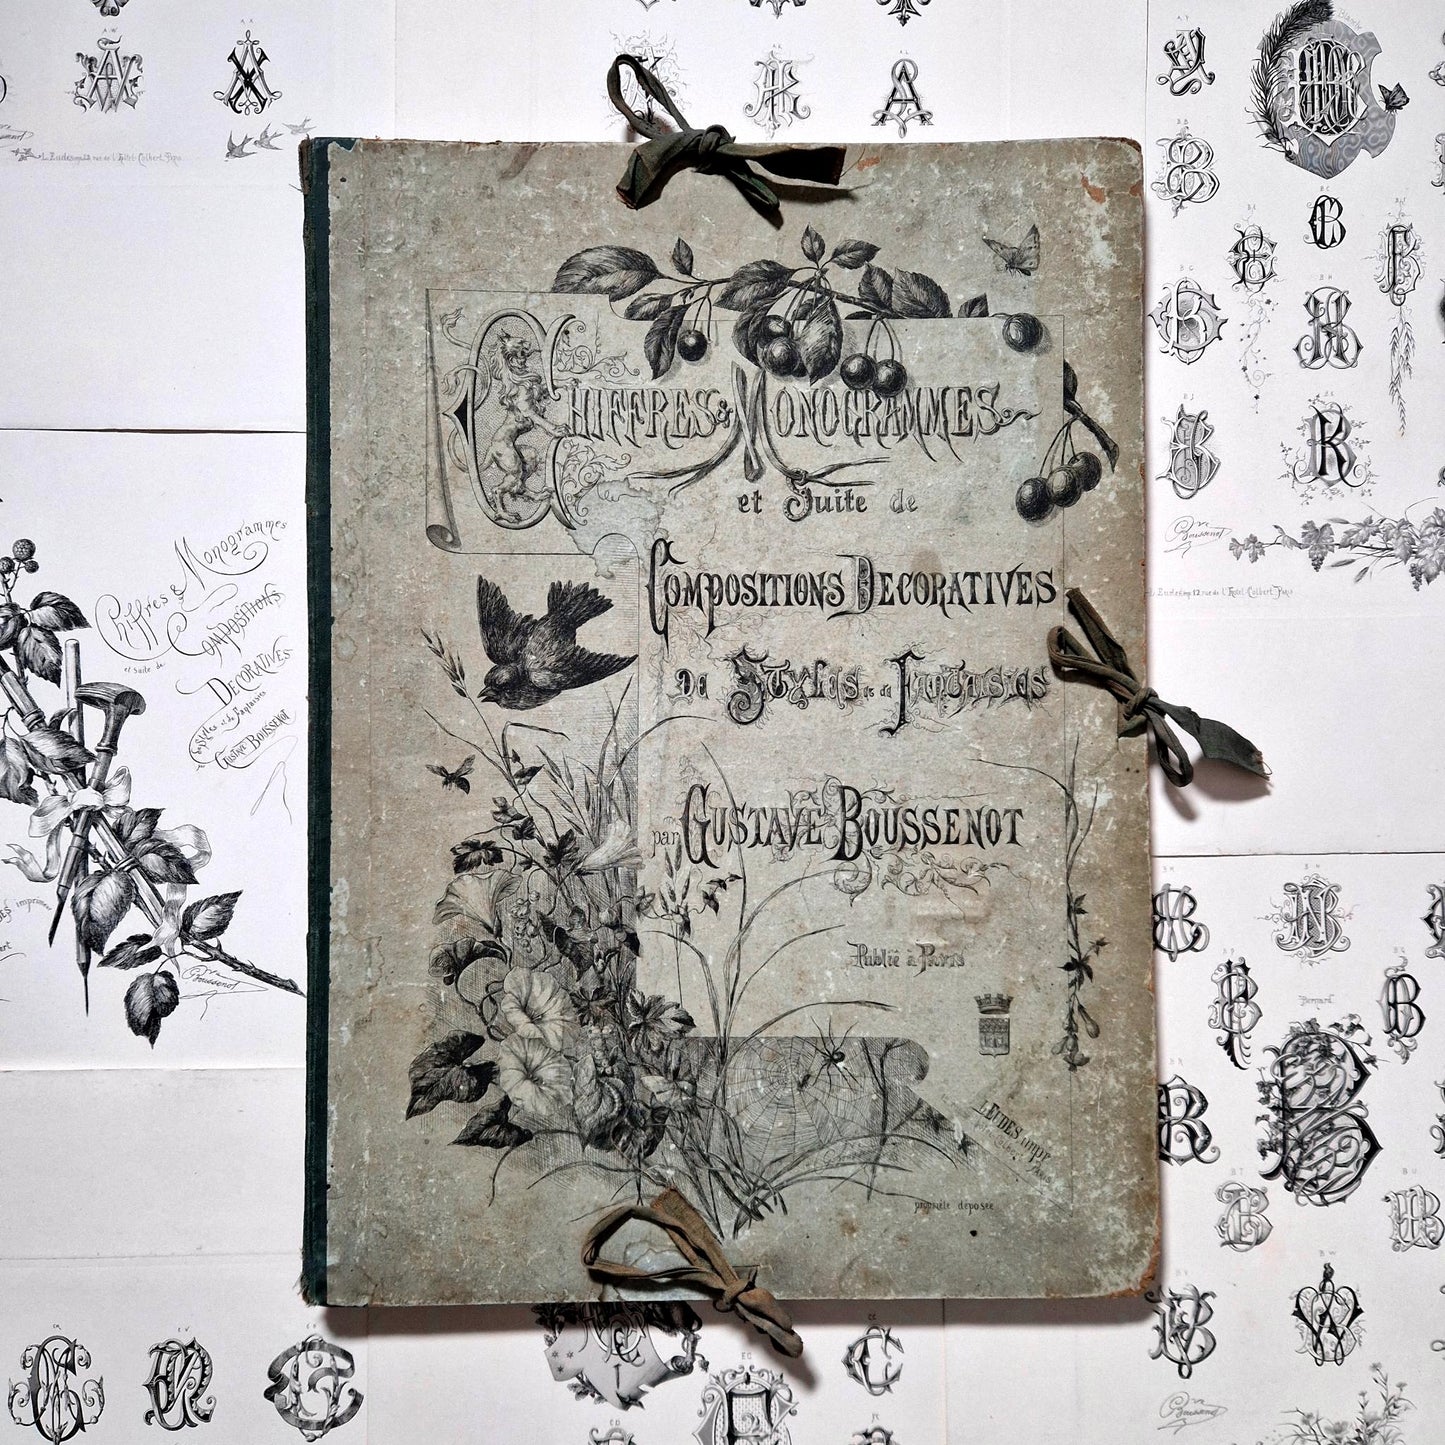 CHIFFRES & MONOGRAMMES
et Suite de
COMPOSITIONS DECORATIVES
DE STYLES et de FANTAISIES
par GUSTAVE BOUSSENOT
Publié à PARIS
L. EUDES impr
propriété déposée
Chiffres & Monogrammes
et suite de
COMPOSITIONS
DECORATIVES
de Styles et de Fantaisies
GUSTAVE BOUSSENOT
imprimeur
Gve Boussenot
A.W
L. Eudes imp. 12 rue de l'Hotel Colbert, Paris
Blanche
B.C
B.G
B.H
B.J
Gve Boussenot
L. Eudes imp. 12 rue de l'Hotel Colbert, Paris
B.M
B.N
Bernard
B.R
B.T
B.U
B.V
B.W
Gve Boussenot